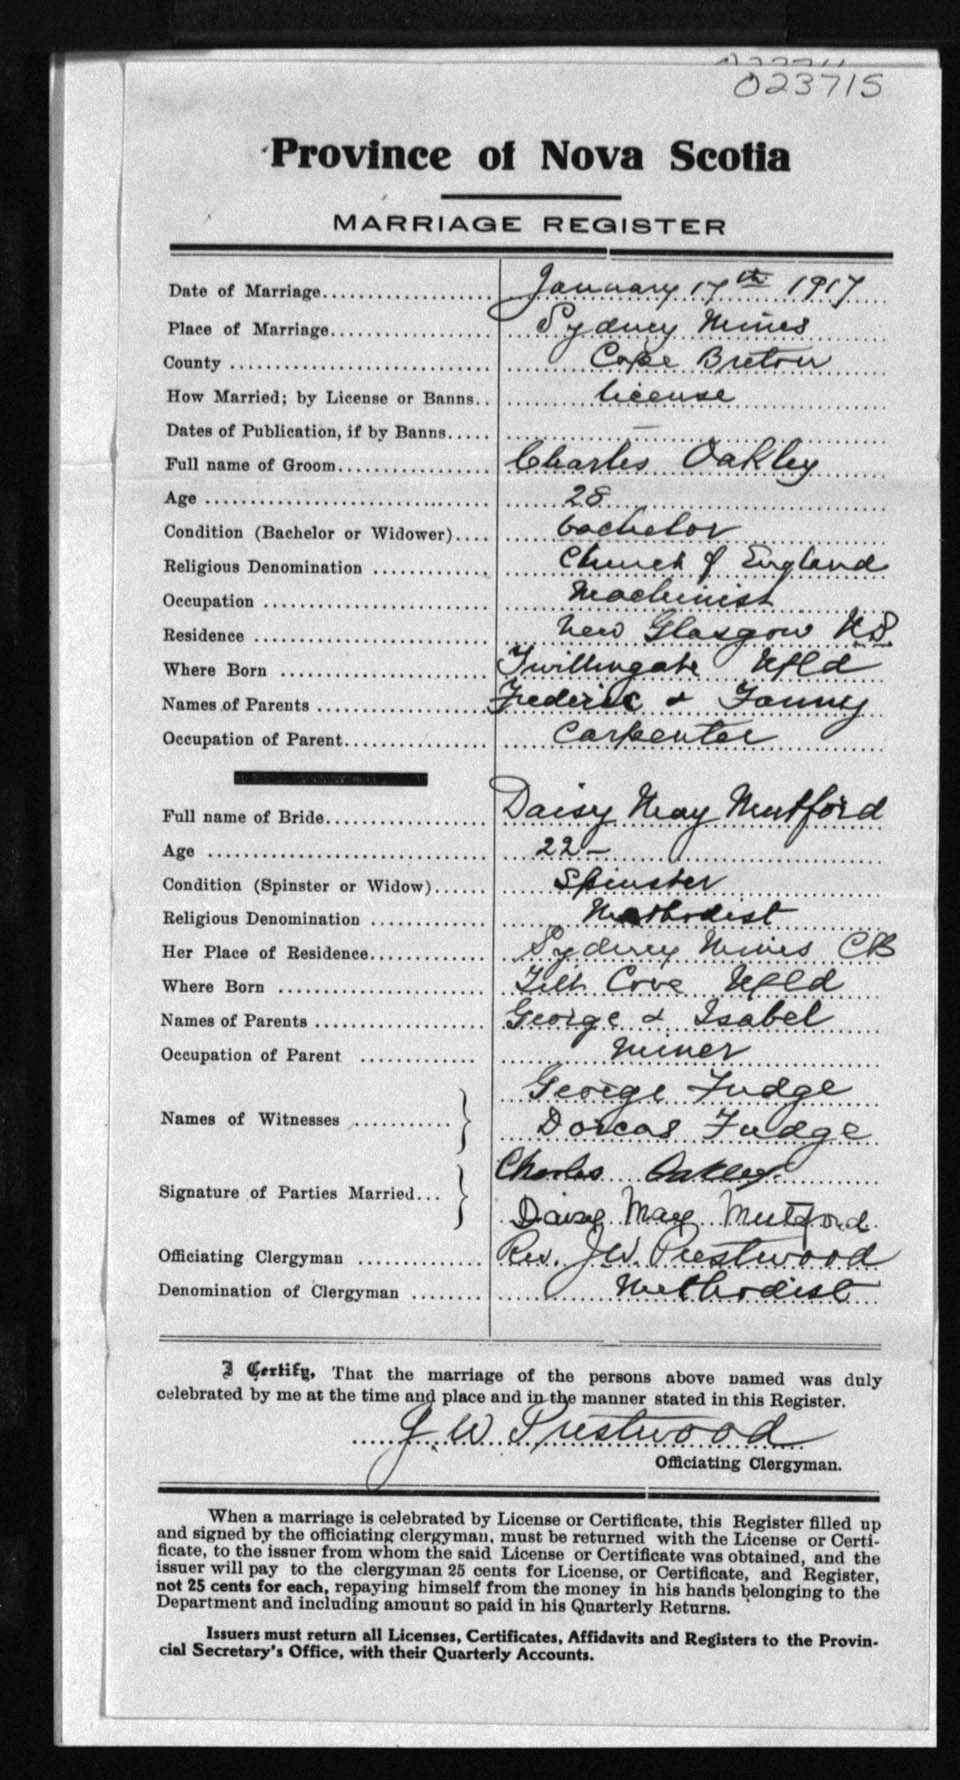 023715
Province of Nova Scotia
MARRIAGE REGISTER
Date of Marriage................... January 17th 1917
Place of Marriage.................. Sydney Mines
County ............................ Cape Breton
How Married; by License or Banns.. license
Dates of Publication, if by Banns..... —
Full name of Groom................. Charles Oakley
Age ............................... 28
Condition (Bachelor or Widower).... bachelor
Religious Denomination ............ Church of England
Occupation ........................ Machinist
Residence ......................... New Glasgow NS
Where Born ........................ Twillingate Nfld
Names of Parents .................. Frederic & Fanny
Occupation of Parent............... Carpenter
Full name of Bride................. Daisy May Mutford
Age ............................... 22 —
Condition (Spinster or Widow)...... Spinster
Religious Denomination ............ Methodist
Her Place of Residence............. Sydney Mines CB
Where Born ........................ Tilt Cove Nfld
Names of Parents .................. George & Isabel
Occupation of Parent .............. miner
George Fudge
Names of Witnesses ............
Dorcas Fudge
Charles Oakley
Signature of Parties Married...
Daisy May Mutford
Officiating Clergyman ............. Rev. J.W. Prestwood
Denomination of Clergyman ........ Methodist
I Certify, That the marriage of the persons above named was duly
celebrated by me at the time and place and in the manner stated in this Register.
J. W. Prestwood
Officiating Clergyman.
When a marriage is celebrated by License or Certificate, this Register filled up
and signed by the officiating clergyman, must be returned with the License or Certi-
ficate, to the issuer from whom the said License or Certificate was obtained, and the
issuer will pay to the clergyman 25 cents for License, or Certificate, and Register,
not 25 cents for each, repaying himself from the money in his hands belonging to the
Department and including amount so paid in his Quarterly Returns.
Issuers must return all Licenses, Certificates, Affidavits and Registers to the Provin-
cial Secretary's Office, with their Quarterly Accounts.